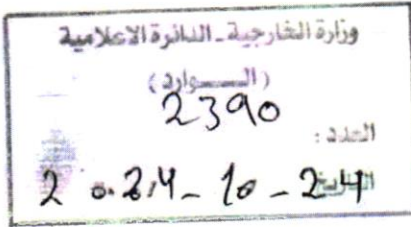 وزارة الخارجية - الدائرة الاعلامية
(الـــوارد)
2390
العدد :
التاريخ 2024-10-24